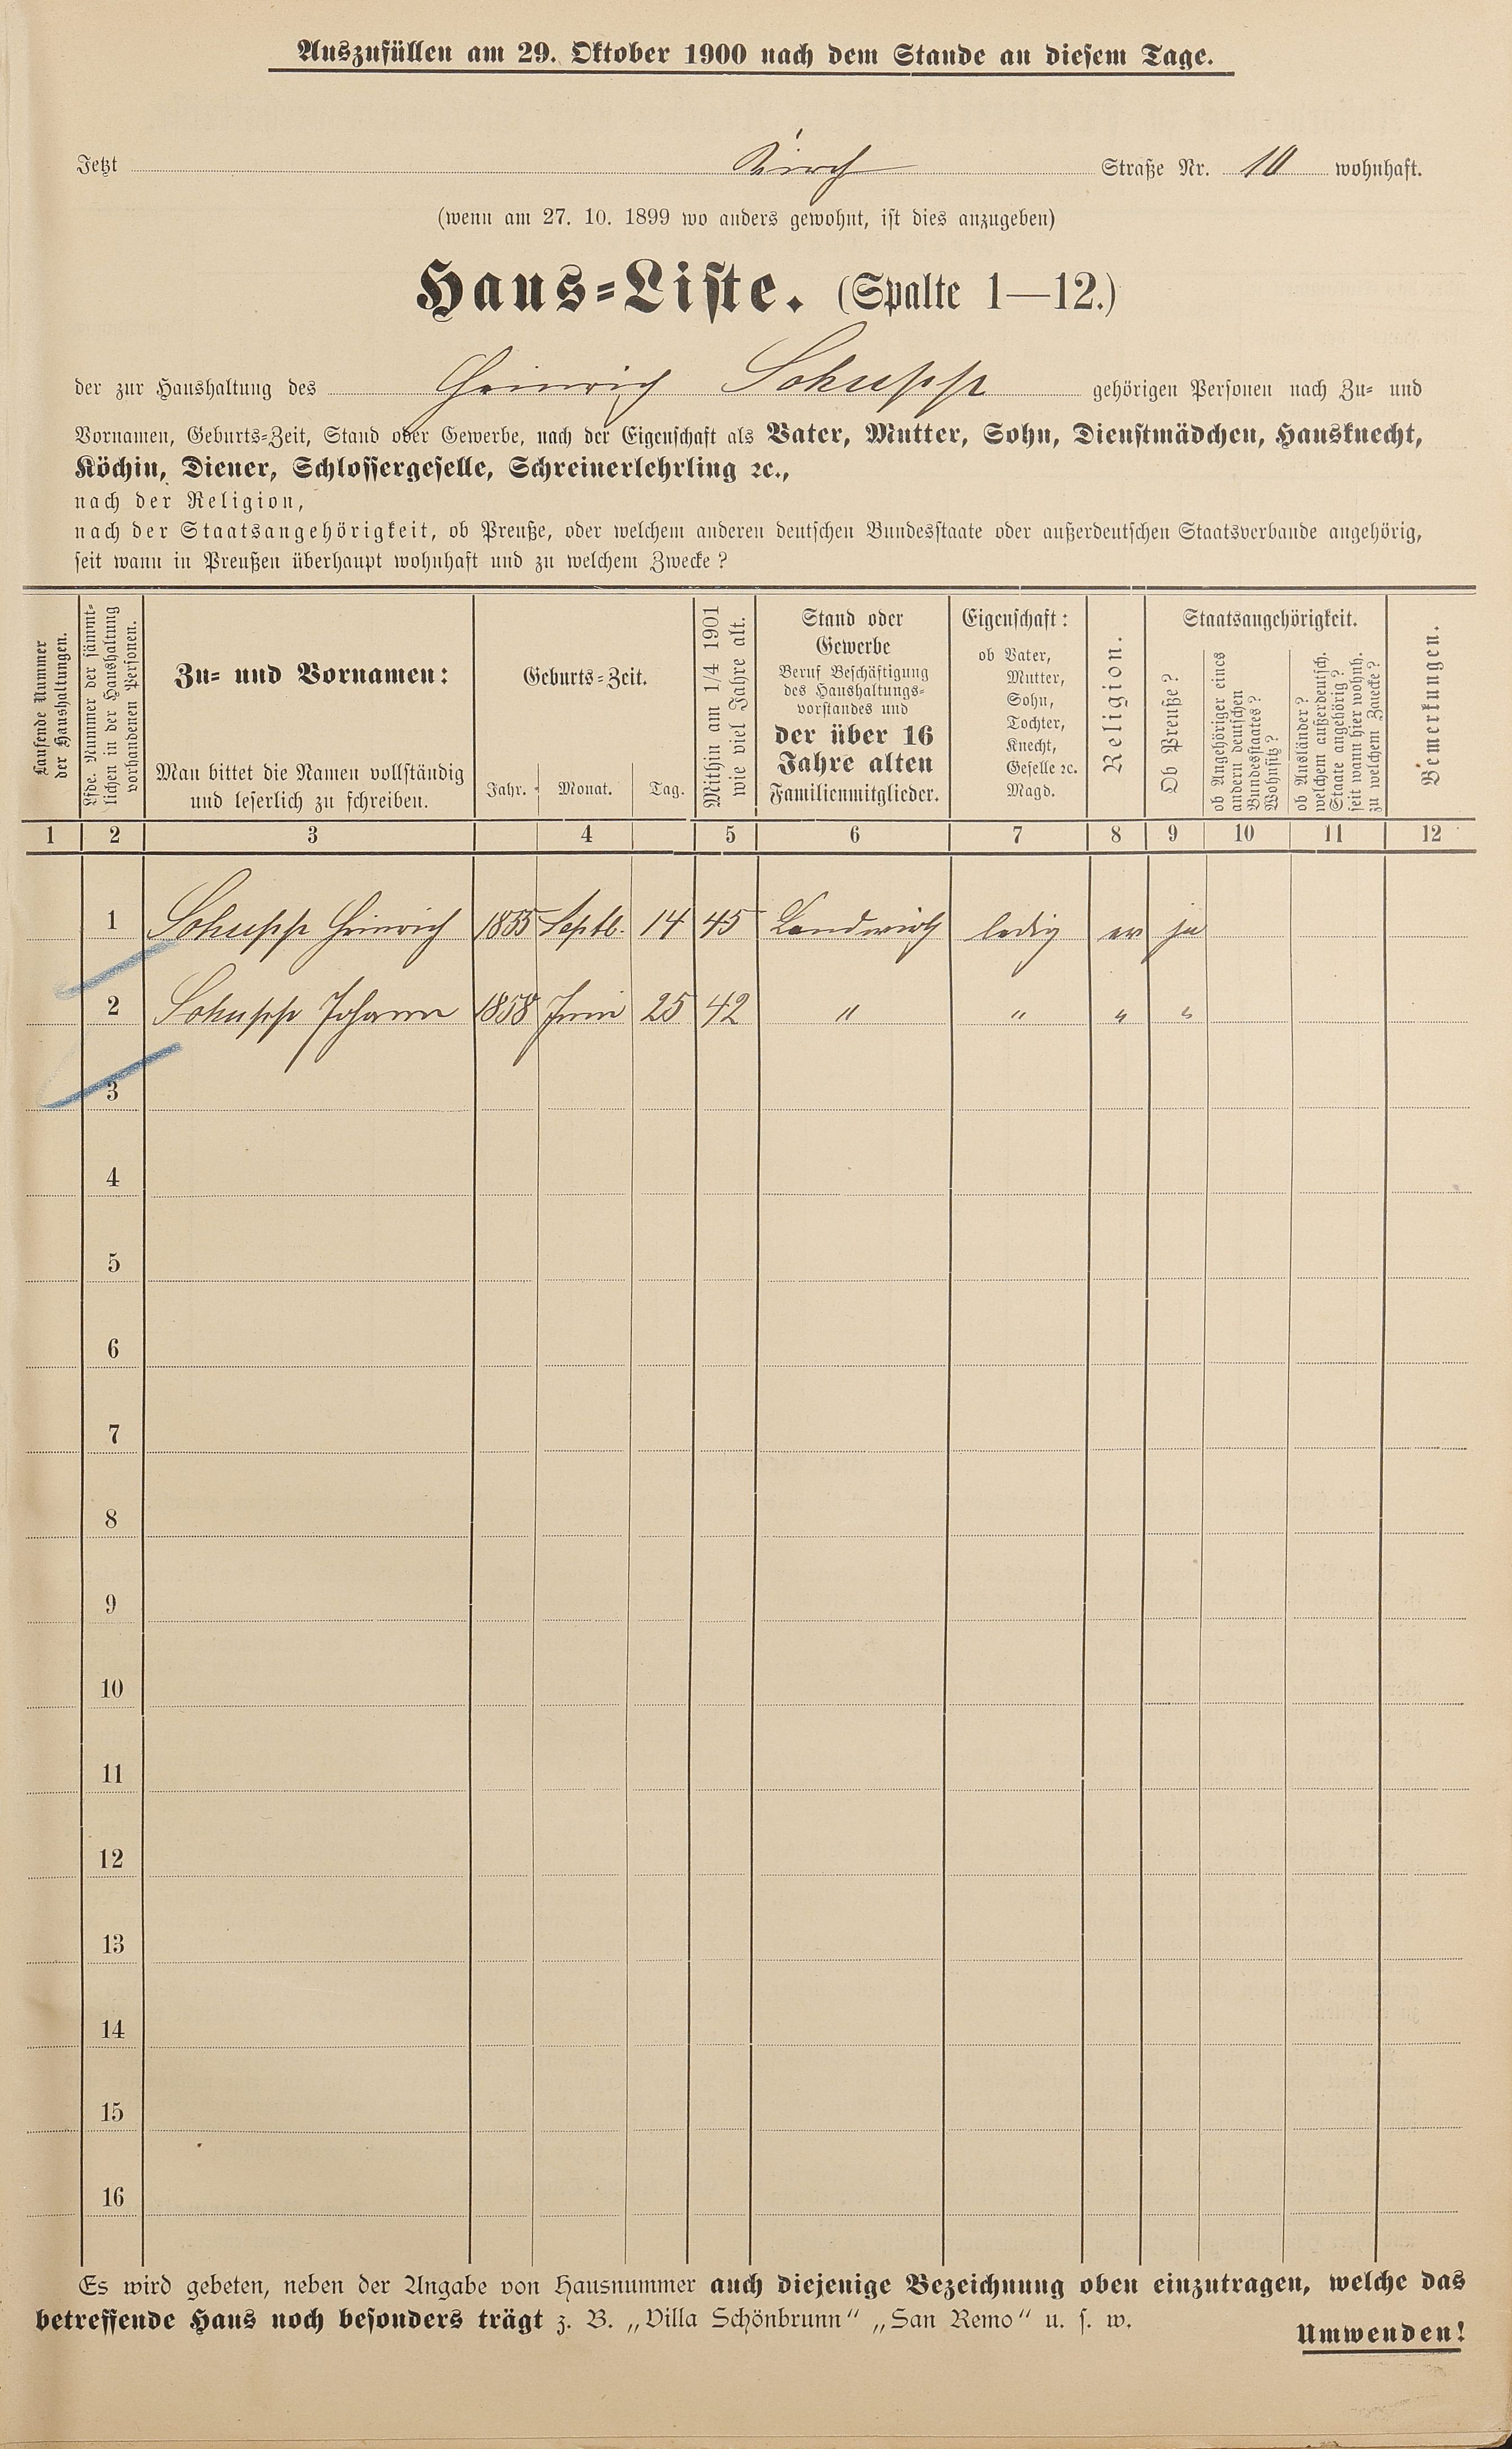 Auszufüllen am 29. Oktober 1900 nach dem Stande an diesem Tage.
Jetzt Kirch Straße Nr. 10 wohnhaft.
(wenn am 27. 10. 1899 wo anders gewohnt, ist dies anzugeben)
Haus-Liste. (Spalte 1—12.)
der zur Haushaltung des Heinrich Schupp gehörigen Personen nach Zu- und
Vornamen, Geburts-Zeit, Stand oder Gewerbe, nach der Eigenschaft als Vater, Mutter, Sohn, Dienstmädchen, Hausknecht,
Köchin, Diener, Schlossergeselle, Schreinerlehrling ꝛc.,
nach der Religion,
nach der Staatsangehörigkeit, ob Preuße, oder welchem anderen deutschen Bundesstaate oder außerdeutschen Staatsverbande angehörig,
seit wann in Preußen überhaupt wohnhaft und zu welchem Zwecke?
Laufende Nummer
der Haushaltungen.
Lfde. Nummer der sämmt-
lichen in der Haushaltung
vorhandenen Personen.
Zu- und Vornamen:
Man bittet die Namen vollständig
und leserlich zu schreiben.
Geburts-Zeit.
Jahr. Monat. Tag.
Mithin am 1/4 1901
wie viel Jahre alt.
Stand oder
Gewerbe
Beruf Beschäftigung
des Haushaltungs-
vorstandes und
der über 16
Jahre alten
Familienmitglieder.
Eigenschaft:
ob Vater,
Mutter,
Sohn,
Tochter,
Knecht,
Geselle ꝛc.
Magd.
Religion.
Staatsangehörigkeit.
Ob Preuße?
ob Angehöriger eines
andern deutschen
Bundesstaates?
Wohnsitz?
ob Ausländer?
welchem außerdeutsch.
Staate angehörig?
seit wann hier wohnh.
zu welchem Zwecke?
Bemerkungen.
1 2 3 4 5 6 7 8 9 10 11 12
1 Schupp Heinrich 1855 Septb. 14 45 Landwirth ledig ev ja
2 Schupp Johann 1858 Juni 25 42 " " " "
3
4
5
6
7
8
9
10
11
12
13
14
15
16
Es wird gebeten, neben der Angabe von Hausnummer auch diejenige Bezeichnung oben einzutragen, welche das
betreffende Haus noch besonders trägt z. B. „Villa Schönbrunn" „San Remo" u. s. w.
Umwenden!